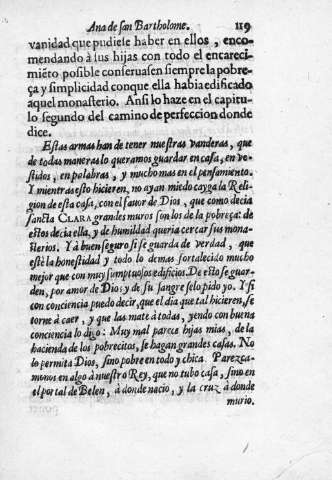 Ana de san Bartholome. 119
vanidad que pudiese haber en ellos, enco-
mendando à sus hijas con todo el encareci-
miẽto posible conseruasen siempre la pobre-
ça y simplicidad conque ella habia edificado
aquel monasterio. Ansi lo haze en el capitu-
lo segundo del camino de perfeccion donde
dice.
Estas armas han de tener nuestras vanderas, que
de todas maneras lo queramos guardar en casa, en ve-
stidos, en palabras, y mucho mas en el pensamiento.
Y mientras esto hicieren, no ayan miedo cayga la Reli-
gion de esta casa, con el fauor de Dios, que como decia
sancta CLARA grandes muros son los de la pobreça: de
estos decia ella, y de humildad queria cercar sus mona-
sterios. Y à buen seguro si se guarda de verdad, que
estè la honestidad y todo lo demas fortalecido mucho
mejor que con muy sumptuosos edificios. De esto se guar-
den, por amor de Dios; y de su sangre selo pido yo. Y si
con conciencia puedo decir, que el dia que tal hicieren, se
torne à caer, y que las mate à todas, yendo con buena
conciencia lo digo: Muy mal parece hijas mias, de la
hacienda de los pobrecitos, se hagan grandes casas. No
lo permita Dios, sino pobre en todo y chica. Parezca-
monos en algo à nuestro Rey, que no tubo casa, sino en
el portal de Belen, à donde nacio, y la cruz à donde
murio.